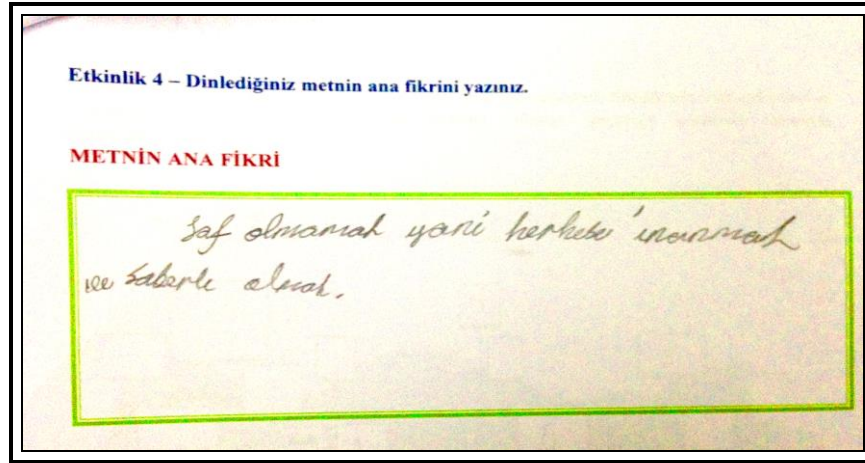 Etkinlik 4 – Dinlediğiniz metnin ana fikrini yazınız.
METNİN ANA FİKRİ
Saf olmamak yani herkese inanmak
ve saberle olmak.